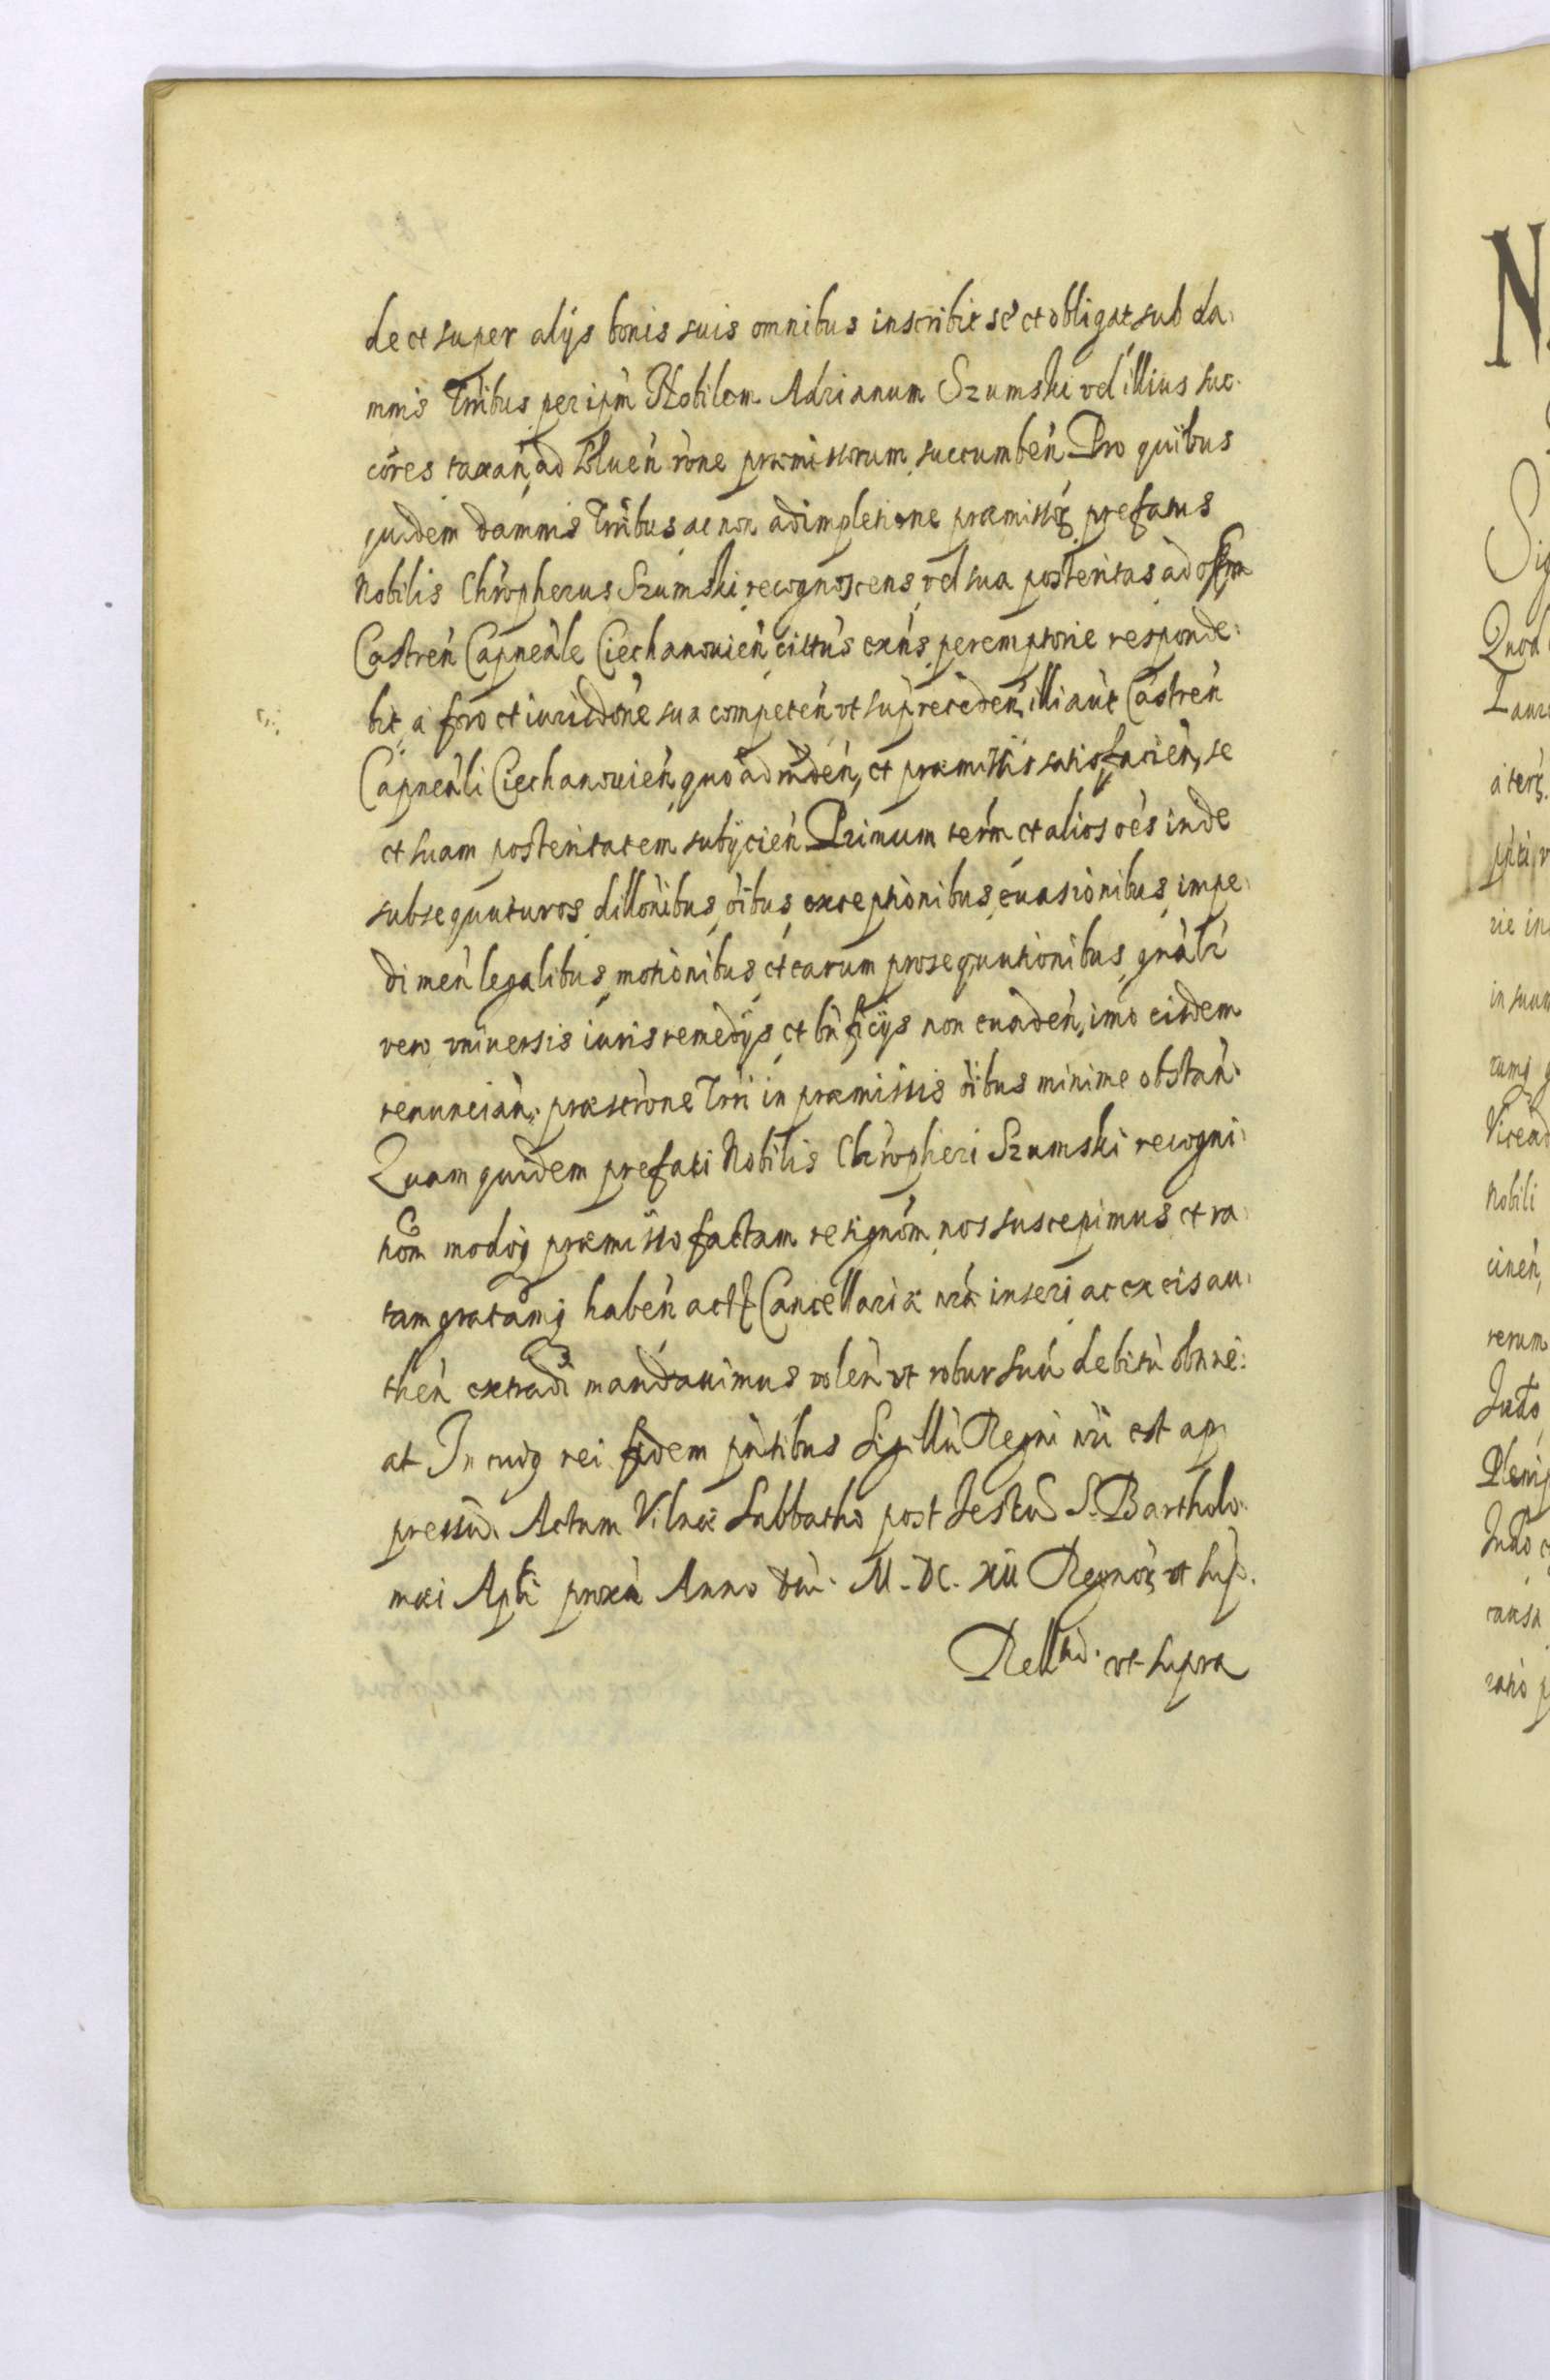 de et super alijs bonis suis omnibus inscribit se et obligat sub da:
mnis trribus per ipm Nobilem Adrianum Szumski vel illius suc:
cores taxan, ad soluen rone præmissorum succumben Pro quibus
quidem damnis trribus ac non adimpletione præmissor prefatus
Nobilis Chropherus Szumski recognoscens vel sua posteritas ad offm
Castren Capneale Ciechanouien cittus exns peremptorie responde:
bit, a foro et iurisdone sua competen vt sup receden, illi aut Castren
Capneali Ciechanouien quo ad rnden, et præmissis satisfacien, se
et suam posteritatem subijcien Primum term et alios oes inde
subsequuturos dillonibus, oibus exceptionibus, euasionibus, impe:
dimen legalibus, motionibus, et earum prosequutionibus, gnalr
vero vniuersis iuris remedijs, et bnficijs non euaden, imo eisdem
renuncian. præscrone trri in præmissis oibus minime obstan.
Quam quidem prefati Nobilis Chropheri Szumski recogni:
nom modoq præmisso factam resignom nos suscepimus et ra:
tam gratamq haben actis Cancellariæ nræ inseri ac ex eis au:
then extradi mandauimus volen vt robur suu debitu obtine:
at In cuiq rei fidem pntibus Sigillu Regni nri est ap:
pressu. Actum Vilnæ Sabbatho post Festu S. Bartholo:
mæi Apli proxa Anno Dni. M. DC. XII Regnor vt sup.
Relltio. vt supra